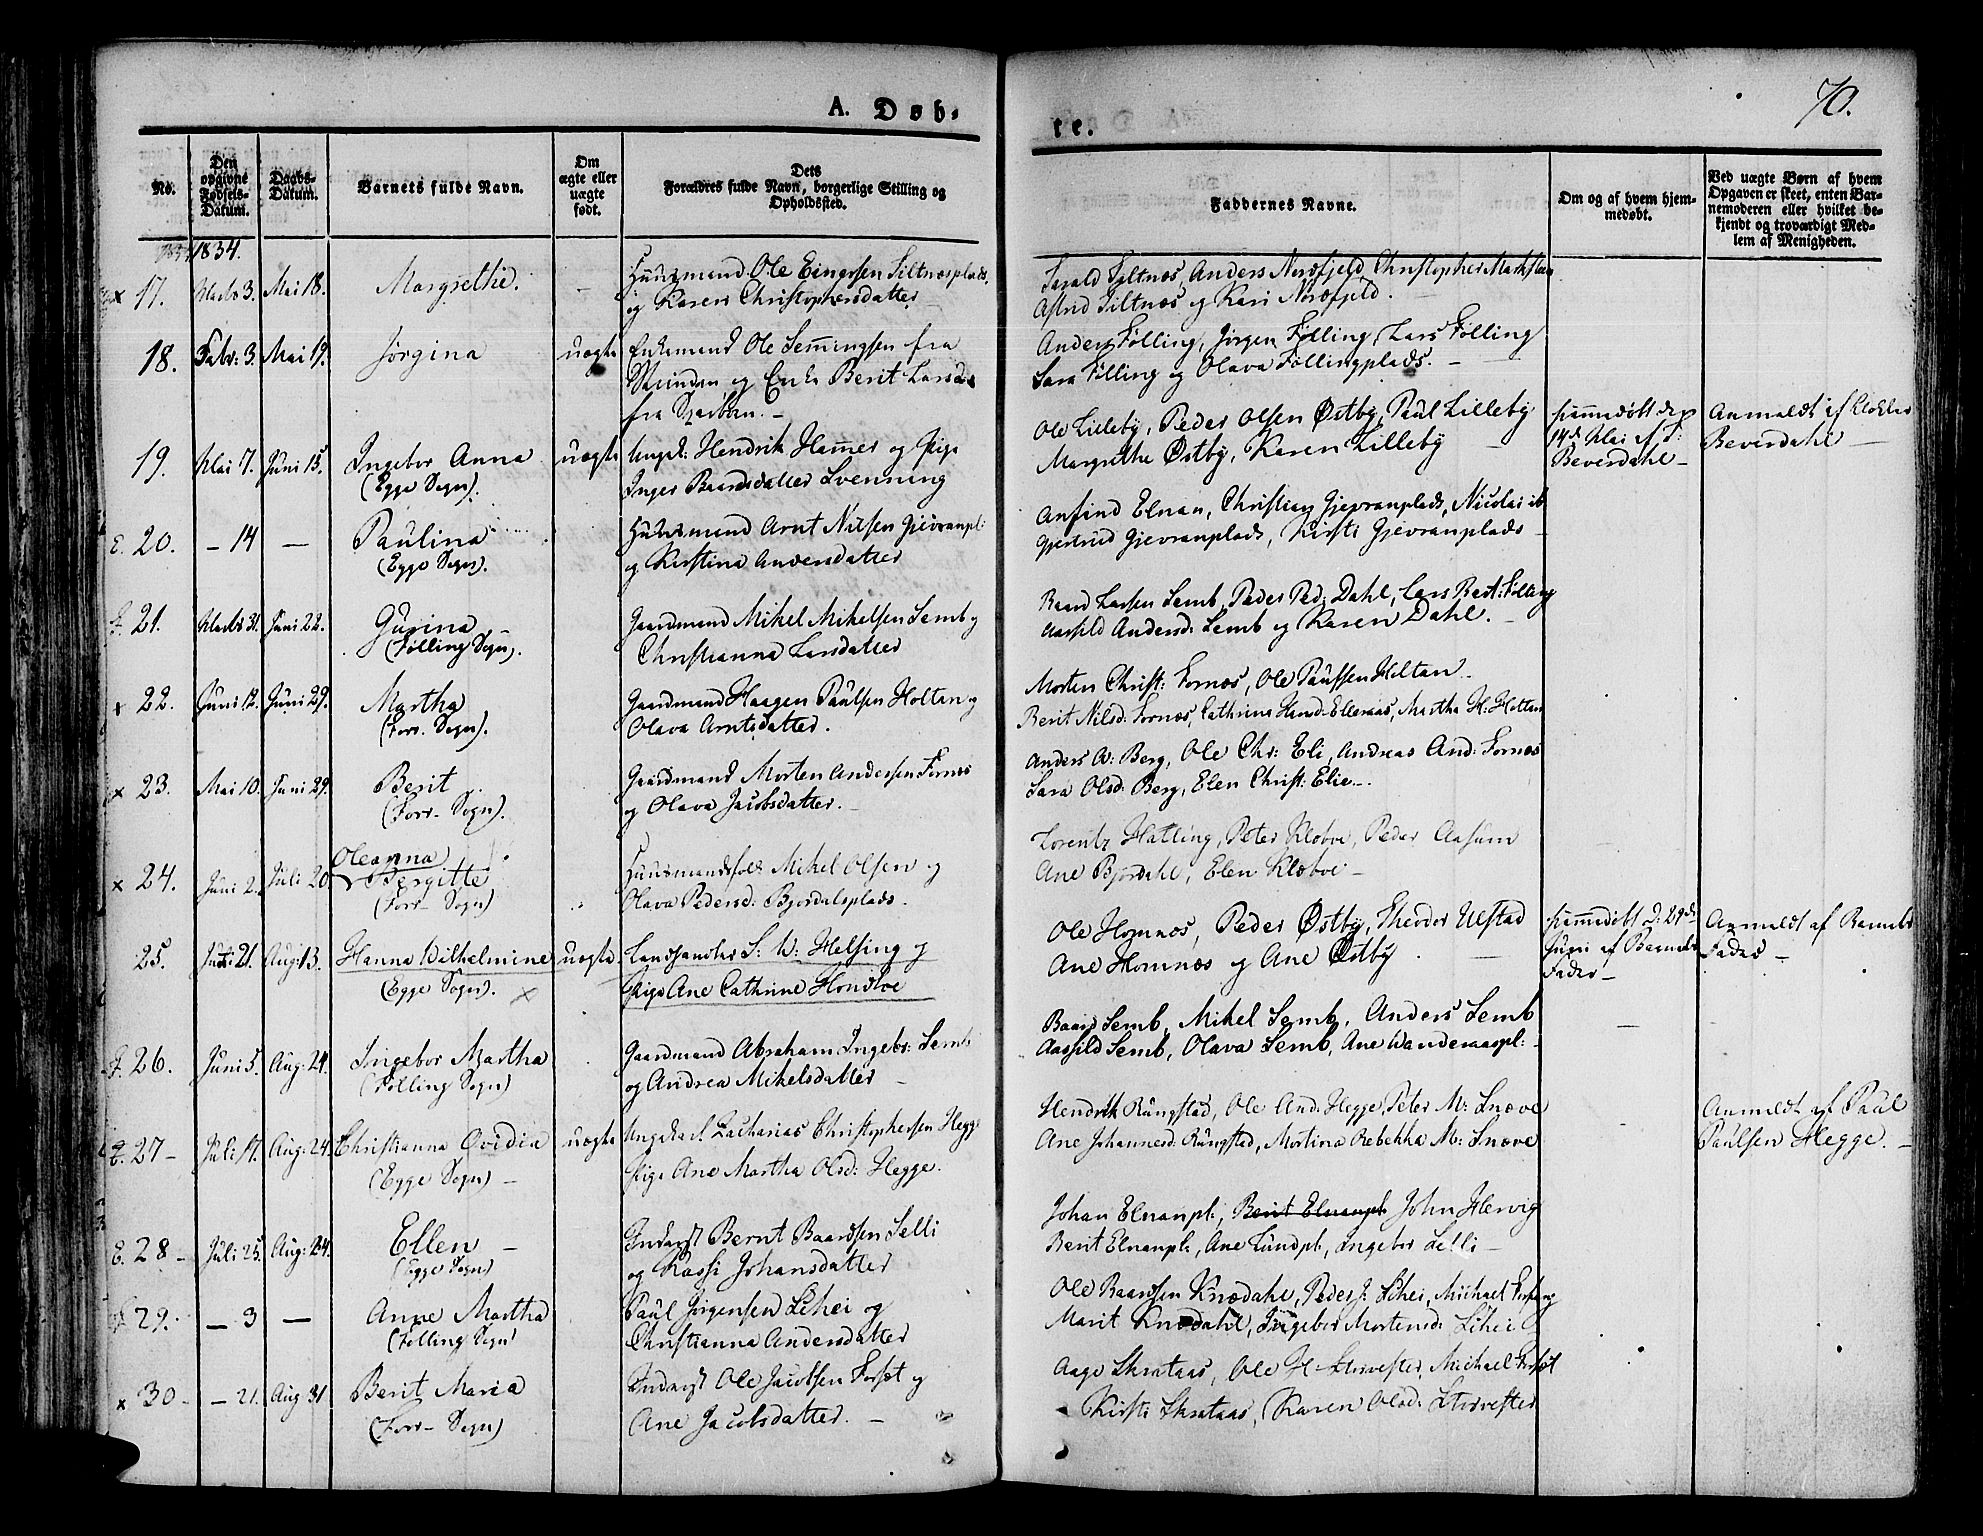 70.
A. Døb-
te.
No.
Den opgivne Fødsels-Datum.
Daabs-Datum.
Barnets fulde Navn.
Om ægte eller uægte født.
Dets
Forældres fulde Navn, borgerlige Stilling og
Opholdssted.
Faddernes Navne.
Om og af hvem hjem-
medøbt.
Ved uægte Børn af hvem
Opgaven er skeet, enten Bar-
nemoderen eller hvilket be-
kjendt og troværdigt Med-
lem af Menigheden.
1834.
x 17. Marts 3. Mai 18. Margrethe. Huusmand Ole Einersen Siltnæsplads
og Karen Christophersdatter
Siltnæs, Anders Nordfjeld, Christopher
Astrid Siltnæs og Kari Nordfjeld.
18. Febr: 3. Mai 19. Jørgina uægte Enkemand Ole Semmingsen fra
Strinden og Enke Berit Larsd:
fra
Anders Følling, Jørgen Følling, Lars Følling
Sara Følling og Olava Føllingplads. -
19. Mai 7. Juni 15. Ingebor Anna uægte Ungk: Hendrik Hamer og Pige
(Egge Sogn). Inger Baardsdatter Svenning
Ole Lilleby, Peder Olsen Østby, Paul Lilleby
Margrethe Østby, Karen Lilleby
hjemmedøbt den
14de Mai af S:
Beverdahl -
Anmeldt af Klokker
Beverdahl -
E. 20. - 14 - Paulina Huusmand Arnt Nilsen Gjevranpl:
(Egge Sogn). og Kirstina Andersdatter
Anfind Elnan, Christian Gjevranplads, Nicolai ib
Gjertrud Gjevranplads, Kirsti Gjevranplads -
F. 21. Marts 31. Juni 22. Gurina - Gaardmand Mikel Mikelsen Semb og
(Følling Sogn). Christianna Larsdatter
Baard Larsen Semb, Peder Ped: Dahl, Lars Bert: Følling
Aasild Andersd: Semb og Karen Dahl. -
x 22. Juni 12. Juni 29. Martha Gaardmand Haagen Paulsen Holtan og
(Forr. Sogn). Olava Arntsdatter.
Morten Christ: Fornæs, Ole Paulsen Holtan -
Berit Nilsd: Fornæs, Cathrina Hansd: Elleraas, Martha H: Holtan
x 23. Mai 10. Juni 29. Berit Gaardmand Morten Andersen Fornæs
(Forr- Sogn). og Olava Jacobsdatter. -
Anders A: Berg, Ole Chr: Eli, Andreas And: Fornæs
Sara Olsd: Berg, Elen Christ: Elie -
x 24. Juni 2. Juli 20 Oleanna
Birgitte Huusmandsfolk Mikel Olsen og
(Forr- Sogn) Olava Pedersd: Bjørdalsplads.
Lorentz Hatling, Peter Kløbve, Peder Aasum
Ane Bjørdahl, Elen Klæboe -
25. Juni 21. Aug: 13. Hanna Wilhelmine uægte Landhandler S: W: Helsing og
(Egge Sogn). x Pige Ane Cathrine Hondloe
Ole Homnæs, Peder Østby, Theodor Ulstad
Ane Homnæs og Ane Østby -
hjemmedøbt d: 29de
Juni af Barnets
Fader -
Anmeldt af Barnets
Fader -
F. 26. Juni 5. Aug: 24. Ingebor Martha Gaardmand Abraham Ingebr: Semb
(Følling Sogn) og Andrea Mikelsdatter -
Baard Semb, Mikel Semb, Anders Semb
Aasild Semb, Olava Semb, Ane Wanderaaspl: -
E. 27 - Juli 17. Aug: 24. Christianna Ovidia uægte Ungkarl Zacharias Christophersen Hegge
(Egge Sogn) - Pige Ane Martha Olsd: Hegge.
Hendrik Rungstad, Ole And: Hegge, Peter M: Snøve
Ane Johannesd: Rungstad, Mortina Rebekka M: Snøve
Anmeldt af Paul
Paulsen Hegge. -
E. 28 - Juli 25. Aug: 24. Ellen - Inderst Bernt Baardsen Selli
(Egge Sogn) og Kassi Johansdatter
Johan Elnanpl:, Berit Elnanpl: John Hervig
Berit Elnanpl:, Ane Lundpl:, Ingebor Selli -
29. - 3 - Anne Martha Paul Jørgensen Lihei og
(Følling Sogn) Christianna Andersdatter
Ole Baardsen Knædahl, Peder J: Lihei, Michael
Marit Knædahl, Ingebor Mortensd: Lihei
x 30 - - 21. Aug 31 Berit Maria Inderst Ole Jacobsen Forset og
(Forr- Sogn) Ane Jacobsdatter. -
Aage Skrataas, Ole H: Storvester, Michael Forset
Kirsti Skrataas, Karen Olsd: Storvester